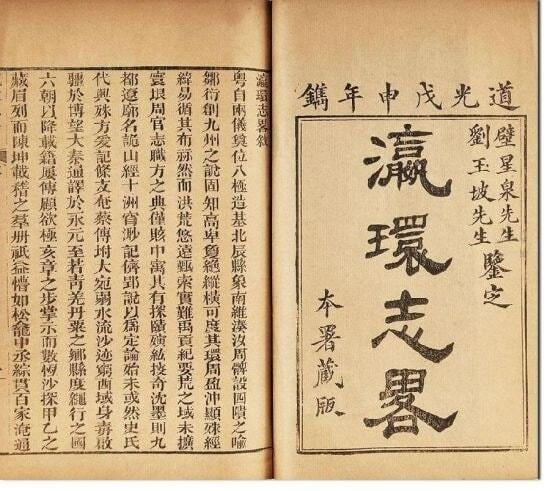 道光戊申年鐫
壁星泉先生
劉玉坡先生
鑒定
瀛環志畧
本署藏版
瀛環志畧敘
粤自兩儀奠位八極造基北辰縣象南維湊沒周髀設四隤之喻
鄒衍創九州之說固知高卑夐絕縱橫可度其環周盈沖顯殊經
緯易循其布赫然而洪荒悠遠甄索實難禹貢紀要荒之域未擴
寰垠周官志職方之典僅賅中寓其有探賾演紘投奇沈墨則九
都遼廓名詭山經十洲渺記儕郢說以爲定論始未或然史氏
代興殊方爰記條支奄蔡傳坿大宛弱水流沙迹窮西域身毒啟
疆於博望大秦通譯於永元至若青羌丹粟之鄉縣度繩行之國
六朝以降載籍屢傳顧欲極亥章之步掌示而數恆沙探甲乙之
藏眉列而陳坤載稽之羣冊祇益懵如松龕中丞綜貫百家淹通